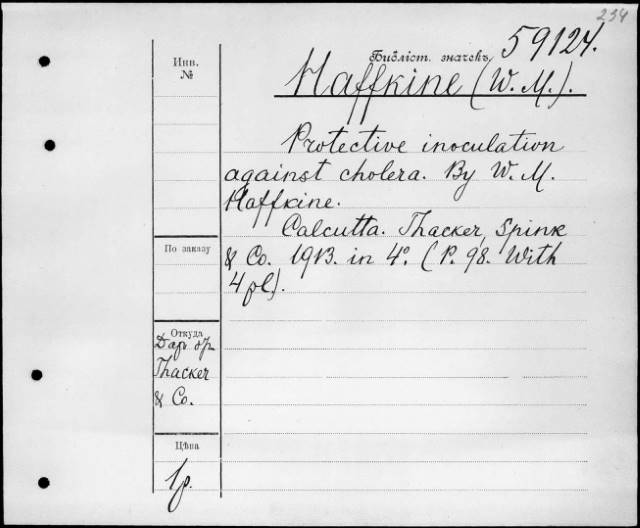 234
Инв.
№
Библіот. значекъ
59124.
Haffkine (W. M.).
Protective inoculation
against cholera. By W. M.
Haffkine.
Calcutta. Thacker, Spink
& Co. 1913. in 4°. (P. 98. With
4 pl).
По заказу
Откуда
Даръ
Thacker
& Co.
Цѣна
1р.